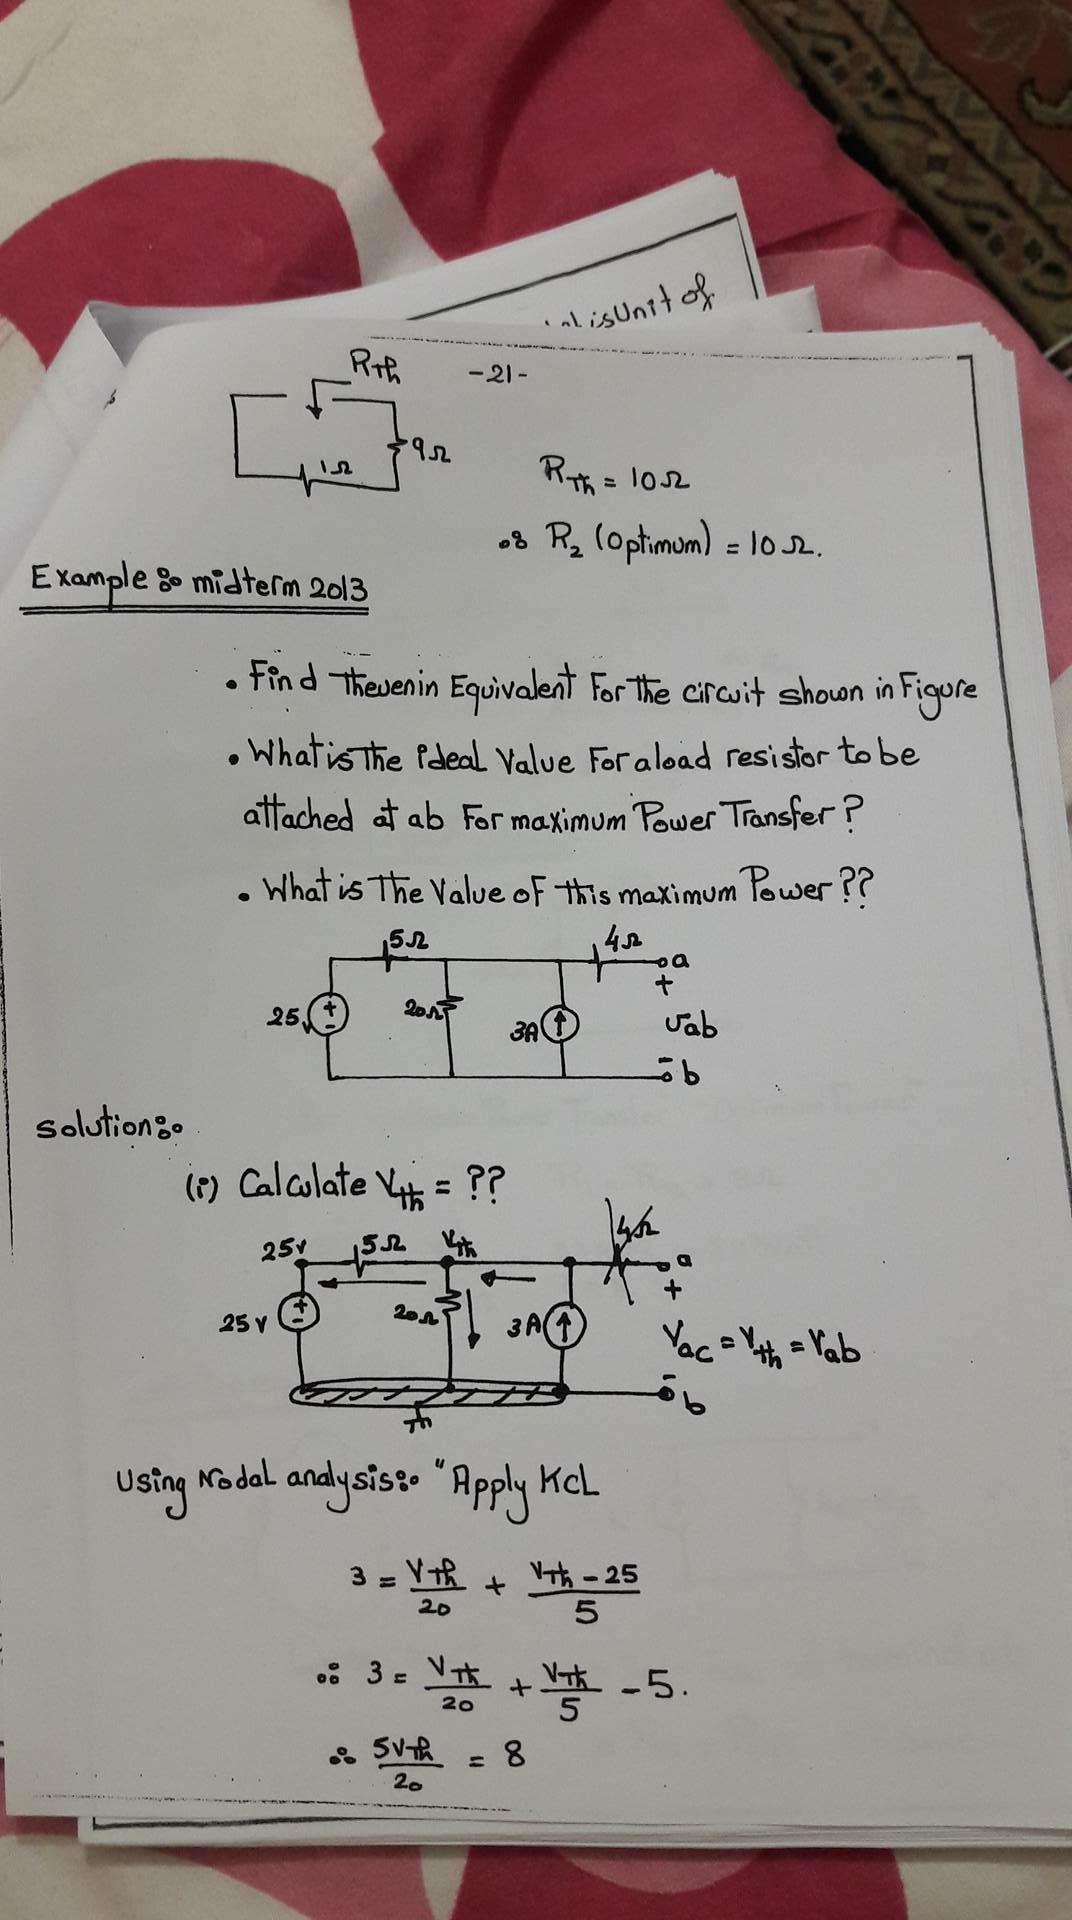 is Unit of
RTh
-21-
9Ω
1Ω
RTh = 10Ω
∴ R2 (optimum) = 10Ω.
Example: midterm 2013
• Find Thevenin Equivalent For The circuit shown in Figure
• What is The ideal Value For a load resistor to be
attached at ab For maximum Power Transfer?
• What is The Value of this maximum Power??
5Ω
4Ω
a
+
25v
+
-
20Ω
3A
vab
-
b
solution:
(i) Calculate Vth = ??
25v
5Ω
Vth
4Ω
a
+
25V
+
-
20Ω
3A
Vac = Vth = Vab
-
b
Using Nodal analysis: "Apply KCL
3 = VTh/20 + (VTh - 25)/5
∴ 3 = VTh/20 + VTh/5 - 5.
∴ 5VTh/20 = 8